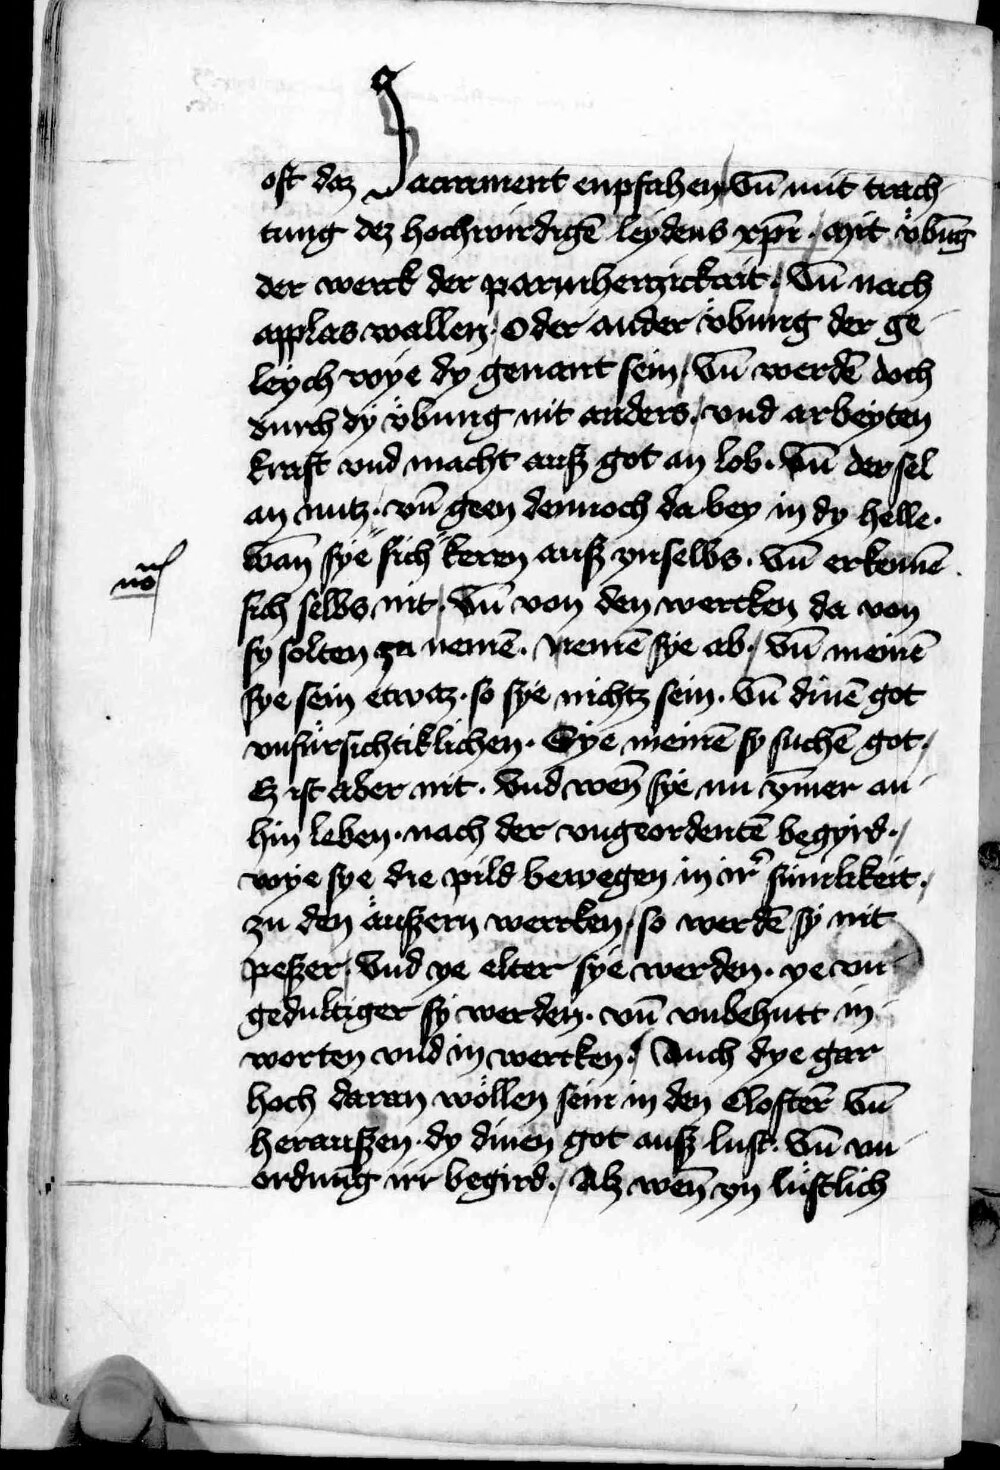 oft daz Sacrament enpfahen / Vn̄ mit trach
tung dez hochwirdigē leydens xp̄i · mit v̈būg
der werck der parmhertzickait / Vn̄ nach
applas wallen / Oder ander v̈bung der ge
leych wye dy genant sein / Vn̄ werdē doch
durch dy v̈bung nit anders / vnd arbeyten
kraft vnd macht auß got an lob · Vn̄ der sel
an nutz · vn̄ geen dennoch da bey in dy helle ·
Wan̄ sye sich keren auß ynselbs · Vn̄ erkennē
no
sich selbs nit / Vn̄ von den wercken da von
sy solten zu nemē · Nemē sye ab / Vn̄ meinē
sye sein etwaz · so sye nichtz sein · Vn̄ dinē got
vnfürsichtiklichen · Sye meinē sy suchē got /
Ez ist aber nit · Vnd wen̄ sye nu ȳmer an
hin leben · nach der vngeordentē begyrd · /
wye sye die pild bewegen in ir̄ sinnlikeit /
zu den äußern wercken / so werdē sy nit
peßer / Vnd ye elter sye werden · ye vn
gedultiger sy werden · vn̄ vnbehutt in
worten vnd in wercken / Auch dye gar
hoch daran wöllen sein in den Closter̄ Vn̄
heraußen · dy dinen got auß lust · Vn̄ vn
ordnūg irr begird · / Alz wen̄ yn lüstlich